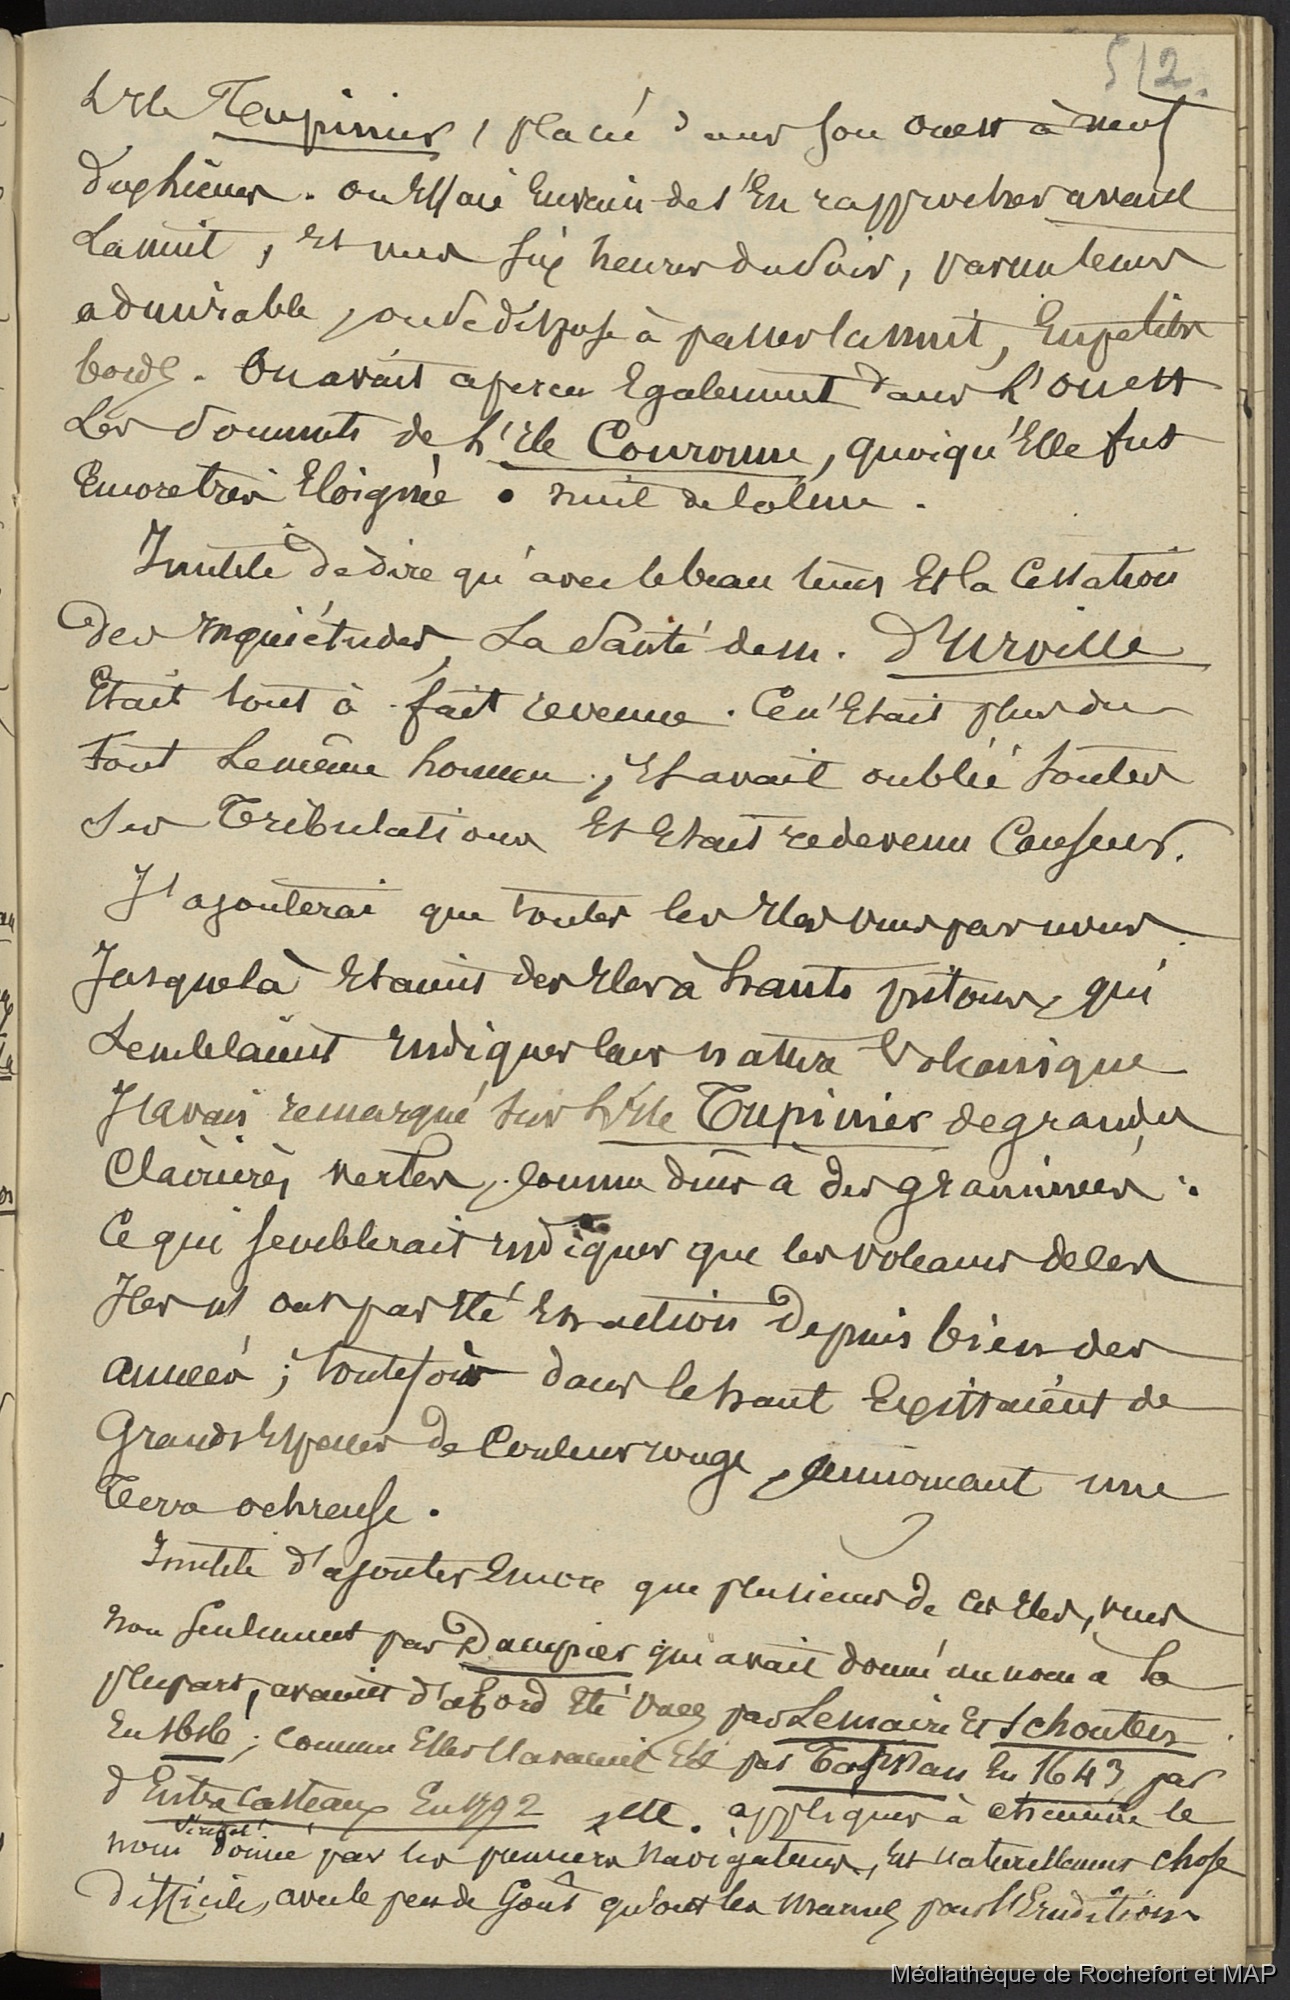 512.
L'Ile Tupinier, placé dans son ouest à neuf
dixhieues. on Essaie Envain de s'En rapprocher avant
La nuit, Et vers six heures du Soir, par un tems
admirable, on se dispose à passer la nuit, En petits
bords. On avait aperçu Egalement dans L'ouest
Les Sommets de L'Ile Couronne, quoiqu'Elle fut
Encore très Eloignée. nuit de calme.
Inutile de dire qu'avec le beau tems Et la Cessation
des Inquiétudes, La Santé de m. D'Urville
Etait tout à fait revenue. Ce n'Etait plus du
tout Le même homme; Il avait oublié toutes
ses Tribulations Et Etait redevenu Causeur.
J'ajouterai que toutes les Iles vues par nous
Jusque là Etaient des Iles à hauts pitons, qui
Semblaient Indiquer leur nature Volcanique
J'avais remarqué sur L'Ile Tupinier de grandes
Clairières vertes, comme dues à des graminées:
Ce qui semblerait Indiquer que les volcans de ces
Iles n'ont pas Eté En action Depuis bien des
années; toutefois dans le haut Existaient de
Grands Espaces de Couleur rouge, annoncant une
Terre ochreuse.
Inutile d'ajouter Encore que plusieurs de ces Iles, vues
non Seulement par Dampier qui avait donné un nom à la
plupart, avaient d'abord Eté vues par Lemaire Et Schouten
En 1616; comme Elles l'avaient Eté par Tasman En 1643, par
d'Entrecasteaux En 1792 etc. appliquer à chacune le
nom donné par les premiers navigateurs, Est naturellement chose
Difficile, avec le peu de Goût qu'ont les marins pour l'Erudition
Médiathèque de Rochefort et MAP